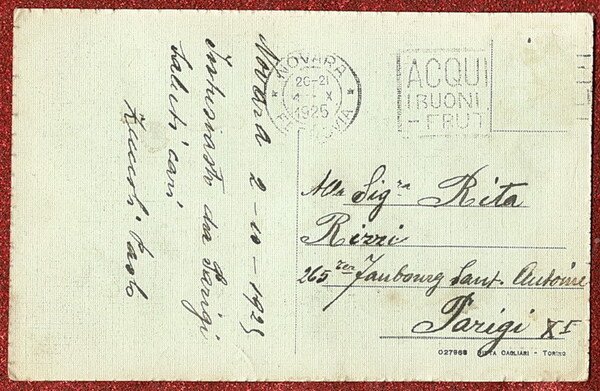 Novara 2-10-1925
Entusiasta da Parigi
saluti cari
Zuccoli Paolo
NOVARA
20-21
4 · X
1925
ACQUI
I BUONI
-FRUT
Alla Sigra Rita
Rizzi
265 ter Faubourg Sant. Antoine
Parigi XI
027968 DITTA CAGLIARI - TORINO